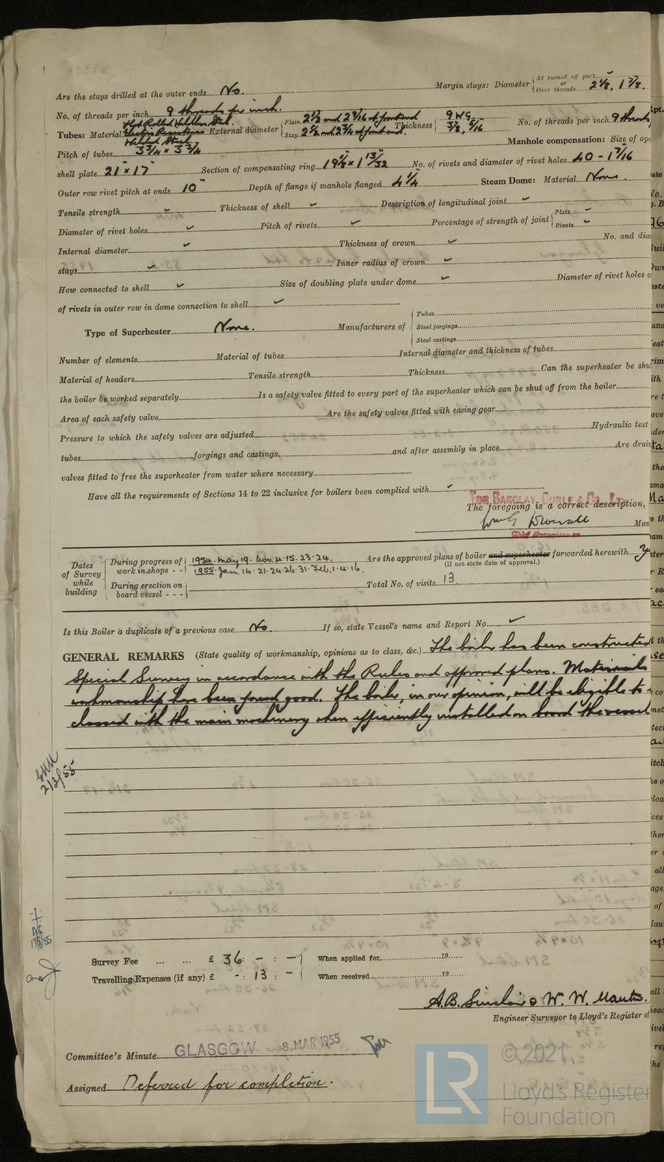 Are the stays drilled at the outer ends No. Margin stays: Diameter { At turned off part, or Over threads 2 1/8, 1 7/8.
No. of threads per inch 9 threads per inch.
Tubes: Material External diameter { Plain 2 1/2 and 2 9/16 at front end Stay 2 1/2 and 2 3/4 at front end. Thickness { 9 WG. 3/8, 5/16 No. of threads per inch 9 threads
Pitch of tubes 3 3/4 x 3 3/4 Manhole compensation: Size of
shell plate 21 x 17 Section of compensating ring No. of rivets and diameter of rivet holes 40 - 1 7/16
Outer row rivet pitch at ends 10" Depth of flange if manhole flanged 4 1/4 Steam Dome: Material None.
Tensile strength ✓ Thickness of shell ✓ Description of longitudinal joint ✓
Diameter of rivet holes ✓ Pitch of rivets ✓ Percentage of strength of joint { Plate ✓ Rivets ✓
Internal diameter ✓ Thickness of crown ✓ No. and
stays ✓ Inner radius of crown ✓
How connected to shell ✓ Size of doubling plate under dome ✓ Diameter of rivet holes
of rivets in outer row in dome connection to shell ✓
Type of Superheater None. Manufacturers of { Tubes Steel forgings Steel castings
Number of elements Material of tubes Internal diameter and thickness of tubes
Material of headers Tensile strength Thickness Can the superheater be
the boiler be worked separately Is a safety valve fitted to every part of the superheater which can be shut off from the boiler
Area of each safety valve Are the safety valves fitted with easing gear
Pressure to which the safety valves are adjusted Hydraulic test
tubes forgings and castings and after assembly in place Are
valves fitted to free the superheater from water where necessary
Have all the requirements of Sections 14 to 22 inclusive for boilers been complied with ✓
FOR BARCLAY, CURLE & CO., LTD.
The foregoing is a correct description,
Dates of Survey while building { During progress of work in shops - - } 1954. May. 19. Nov. 4. 15. 23. 24. 1955. Jan. 14. 21. 24. 26. 31. Feb. 1. 4. 16. Are the approved plans of boiler and superheater forwarded herewith
(If not state date of approval.)
{ During erection on board vessel - - - } Total No. of visits 13
Is this Boiler a duplicate of a previous case No. If so, state Vessel's name and Report No. ✓
GENERAL REMARKS (State quality of workmanship, opinions as to class, &c.) The boiler has been constructed
Special Survey in accordance with the Rules and approved plans. Materials
workmanship have been found good. The boiler, in our opinion, will be eligible to
classed with the main machinery when efficiently installed on board the vessel
2/3/55
Survey Fee ... ... £ 36 : - : - } When applied for, 19
Travelling Expenses (if any) £ - : 13 : - } When received 19
A.B. Sinclair & W. W.
Engineer Surveyor to Lloyd's Register of
Committee's Minute GLASGOW 8 MAR 1955
Assigned Deferred for completion.
LR © 2021
Lloyd's Register
Foundation